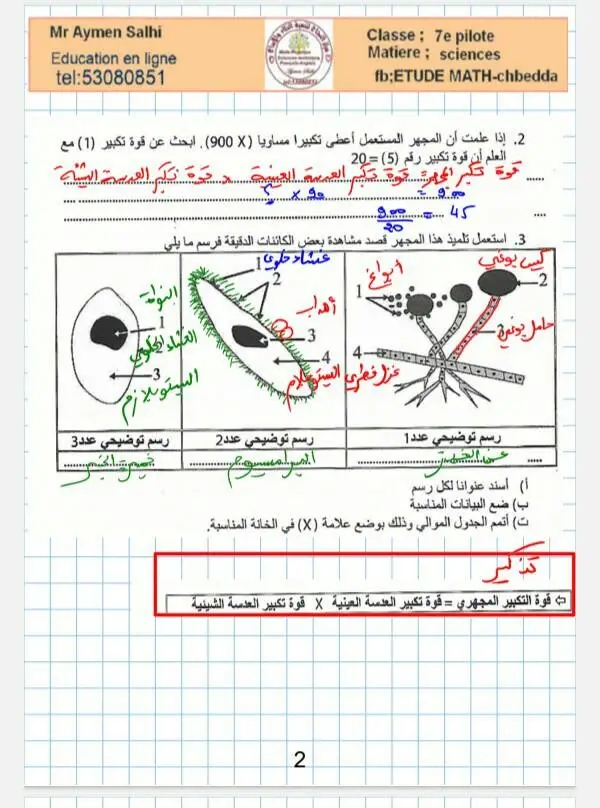 Mr Aymen Salhi
Education en ligne
tel:53080851
Classe ; 7e pilote
Matiere ; sciences
fb;ETUDE MATH-chbedda
2. إذا علمت أن المجهر المستعمل أعطى تكبيرا مساويا (X 900). ابحث عن قوة تكبير (1) مع
العلم أن قوة تكبير رقم (5) = 20
قوة تكبير المجهر = قوة تكبير العدسة العينية x قوة تكبير العدسة الشيئية
900 =
900/20 = 45
3. استعمل تلميذ هذا المجهر قصد مشاهدة بعض الكائنات الدقيقة فرسم ما يلي
كيس بوغي
أبواغ
1
2
حامل بوغي
3
4
غزل فطري
غشاء خلوي
1
2
أهداب
3
4
السيتوبلازم
النواة
1
الغشاء الخلوي
2
3
السيتوبلازم
رسم توضيحي عدد1
رسم توضيحي عدد2
رسم توضيحي عدد3
عفن الخبز
البراميسيوم
خميرة الخبز
أ) أسند عنوانا لكل رسم
ب) ضع البيانات المناسبة
ت) أتمم الجدول الموالي وذلك بوضع علامة (X) في الخانة المناسبة.
تذكير
⇦ قوة التكبير المجهري = قوة تكبير العدسة العينية X قوة تكبير العدسة الشيئية
2